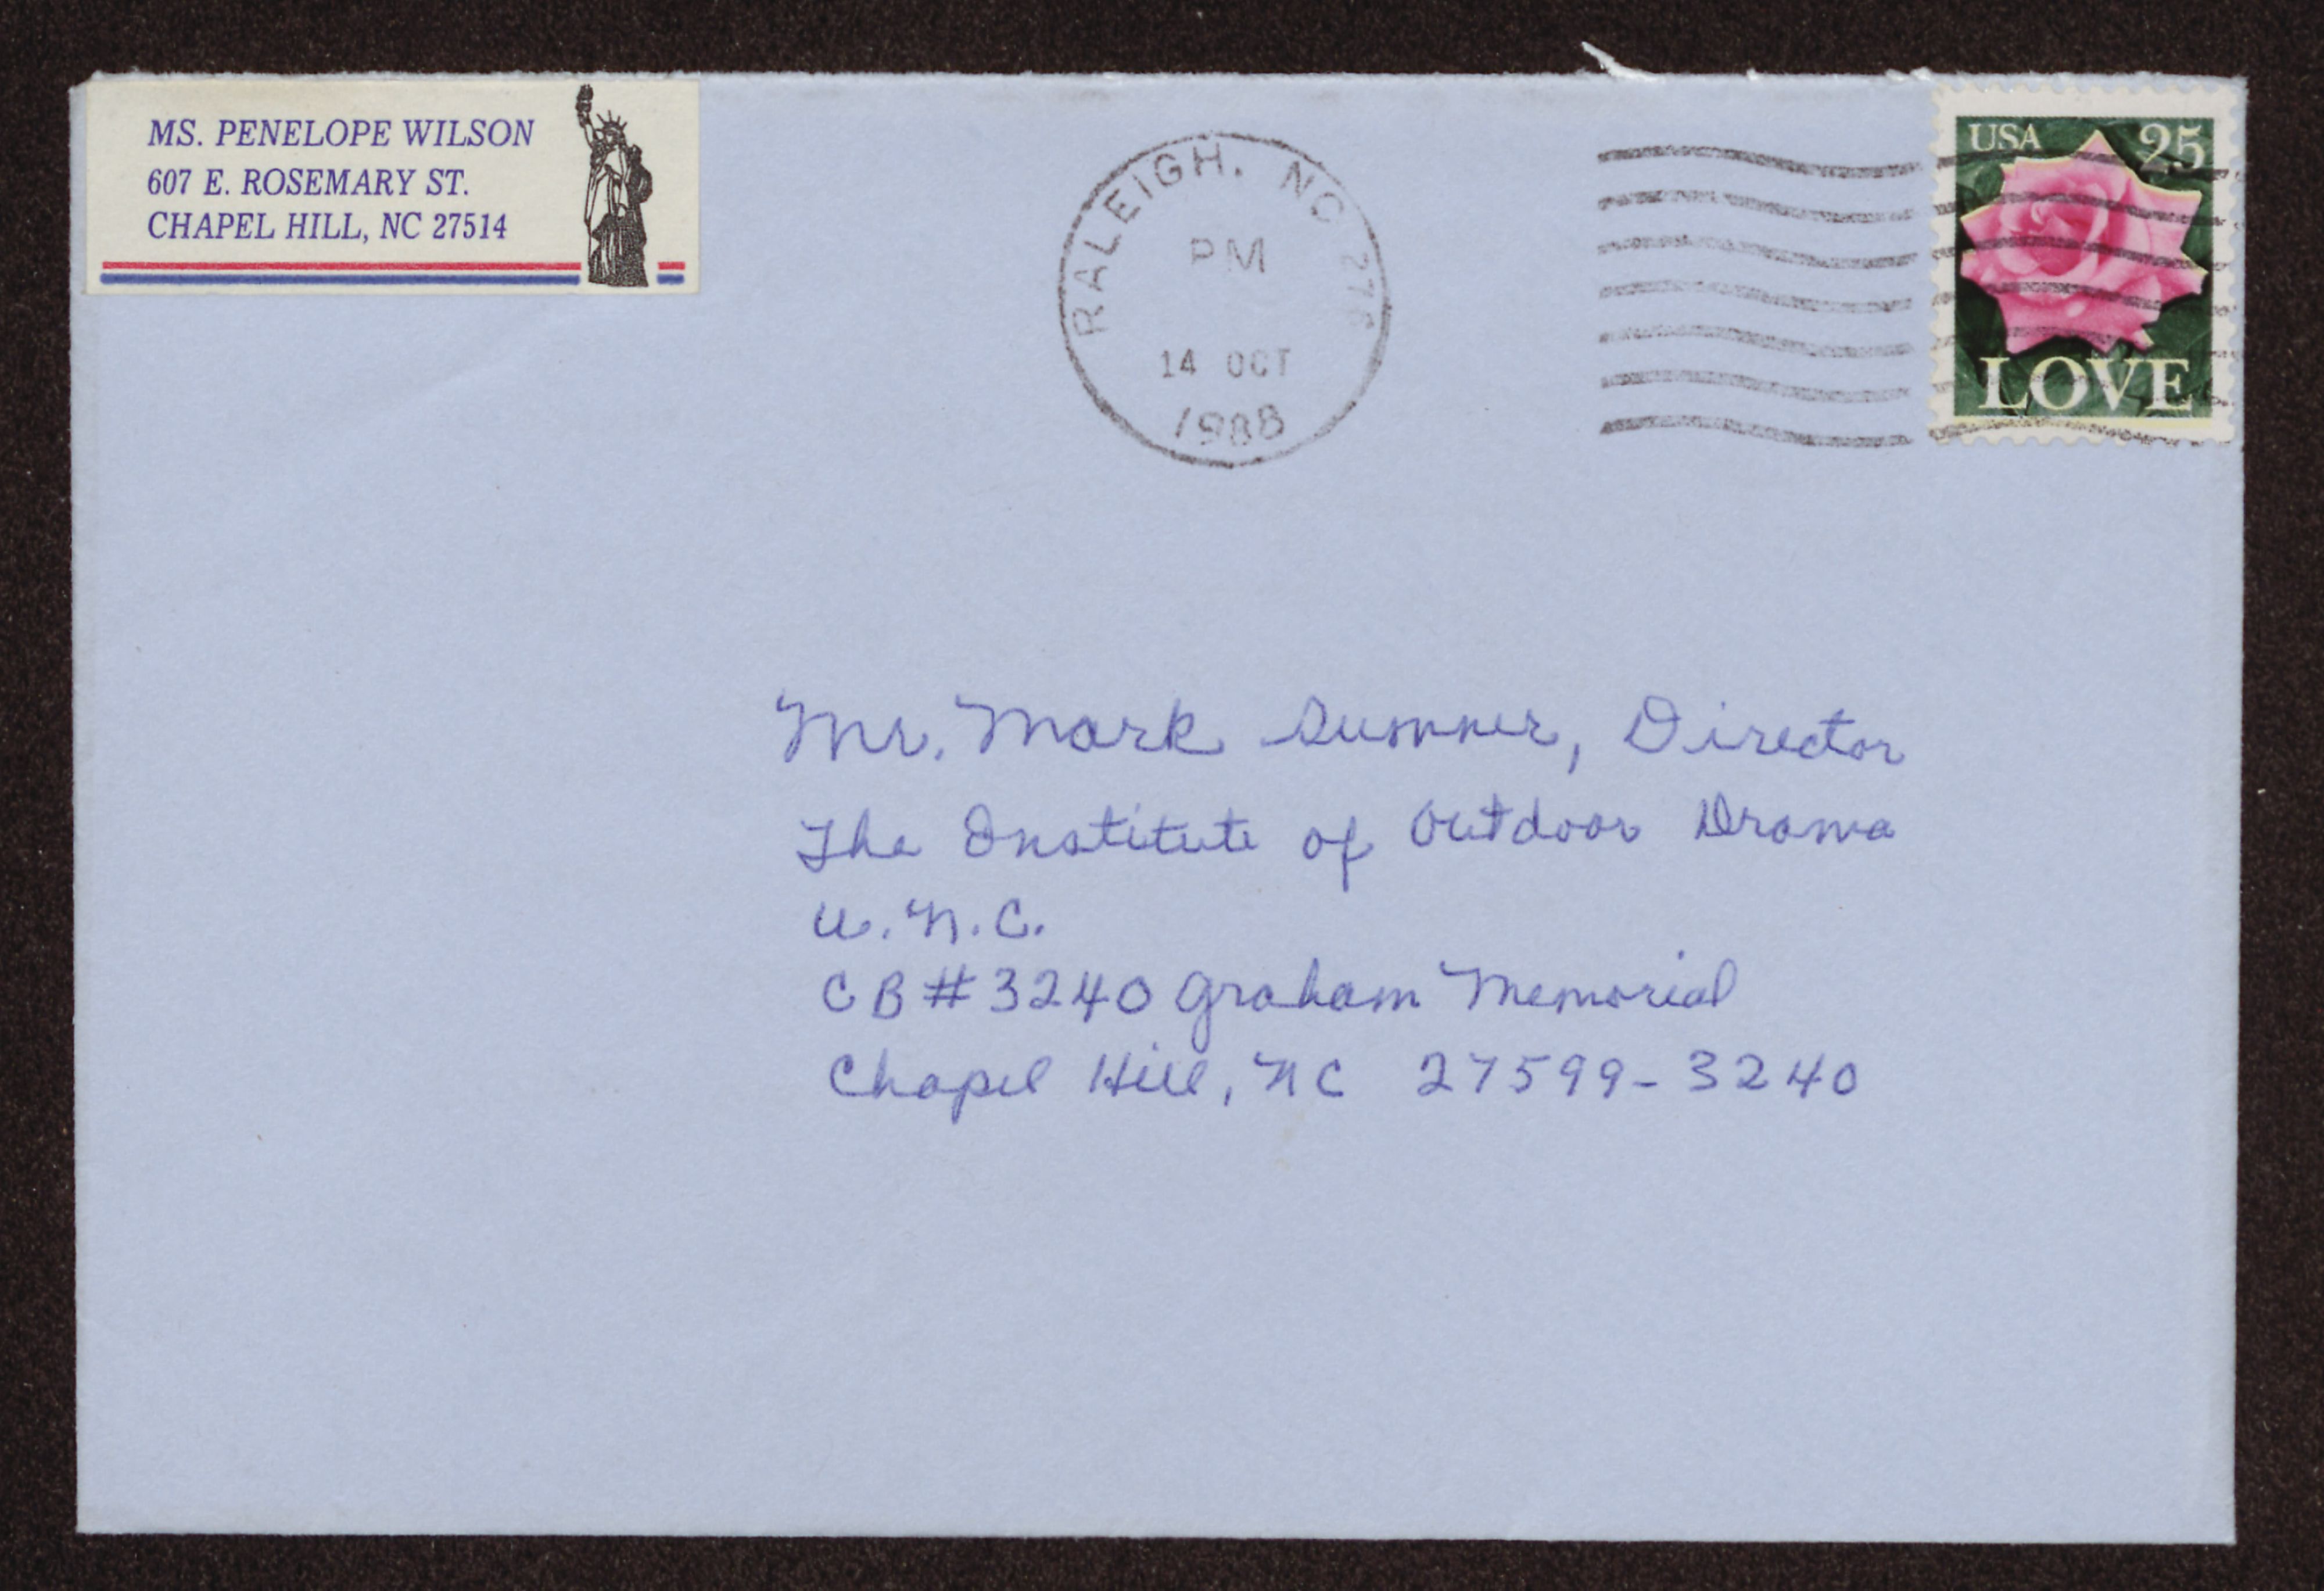 MS. PENELOPE WILSON
607 E. ROSEMARY ST.
CHAPEL HILL, NC 27514
RALEIGH, NC 276
PM
14 OCT
1988
USA 25
LOVE
Mr. Mark Sumner, Director
The Institute of Outdoor Drama
U.N.C.
CB#3240 Graham Memorial
Chapel Hill, NC 27599-3240